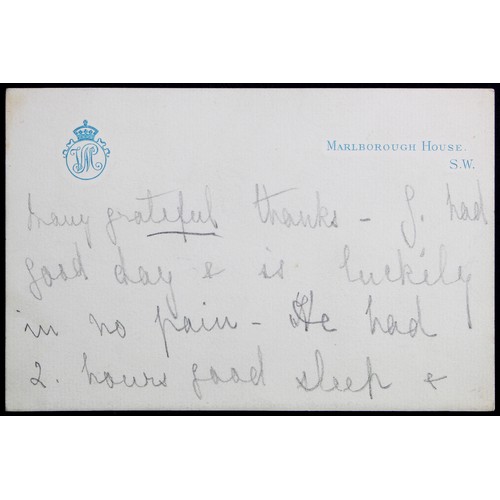 MARLBOROUGH HOUSE.
S.W.
Many grateful thanks – G. had
good day & is luckily
in no pain – He had
2. hours good sleep &